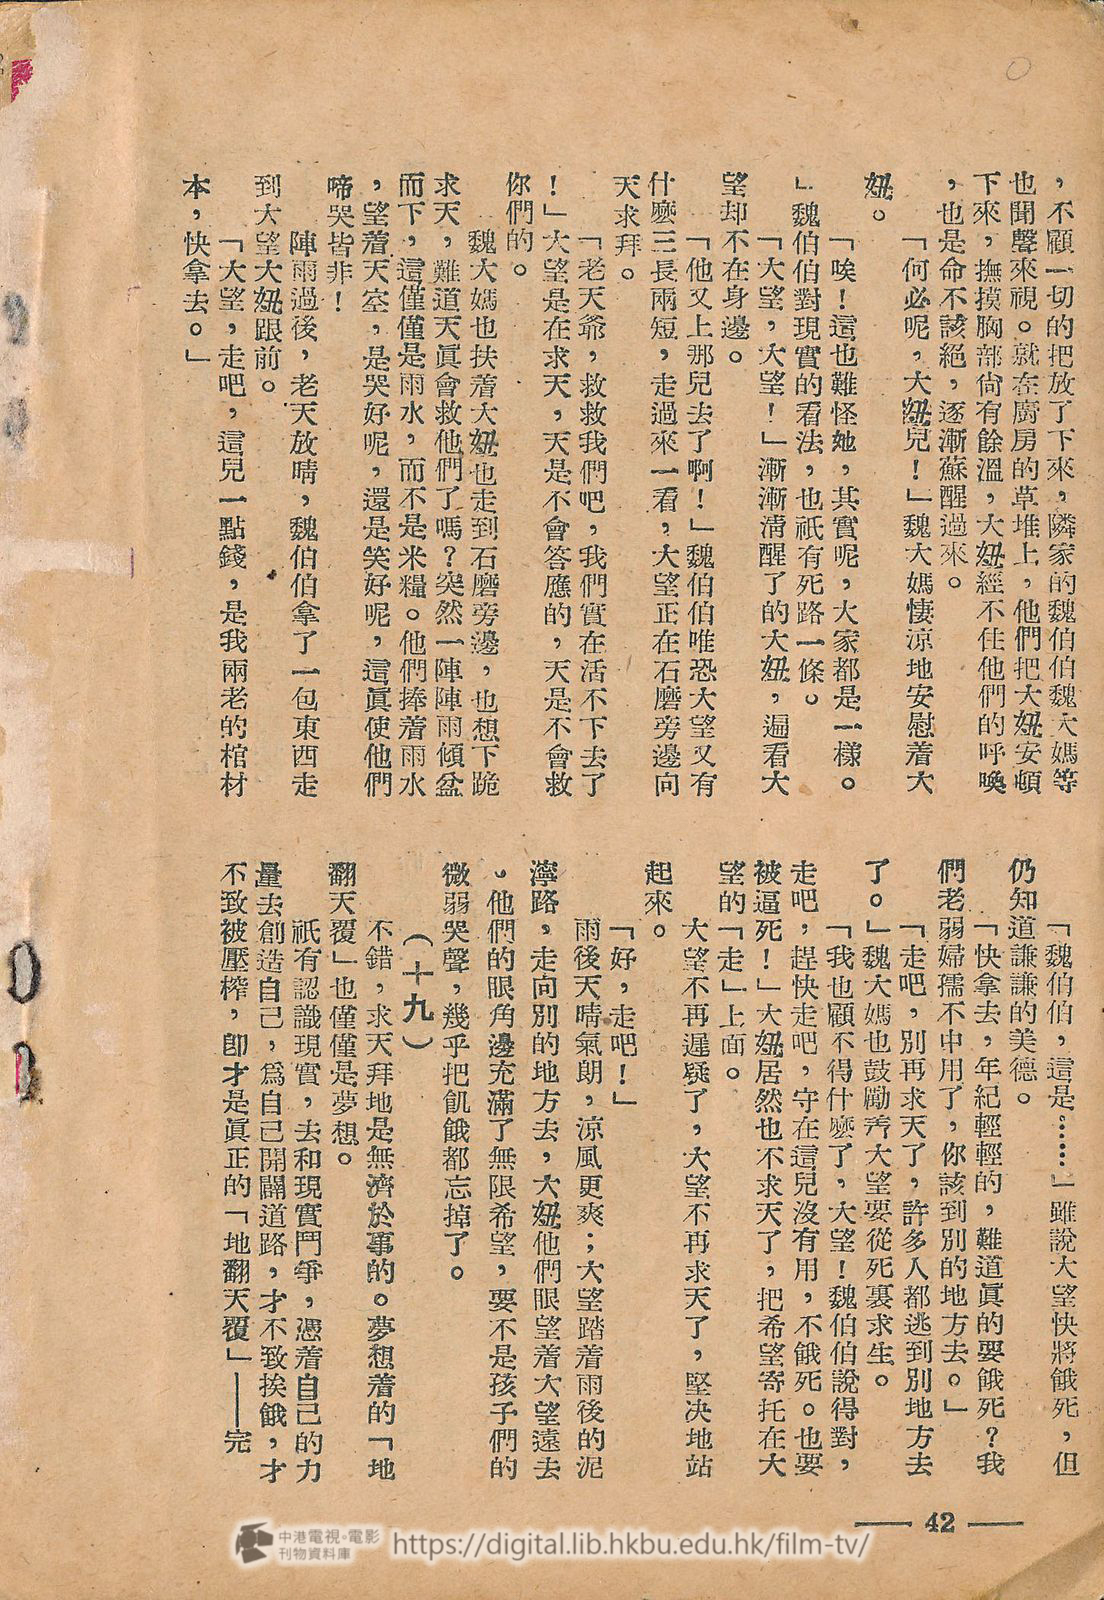 ，不顧一切的把放了下來，隣家的魏伯伯魏大媽等
也聞聲來視。就在廚房的草堆上，他們把大妞安頓
下來，撫摸胸部尙有餘溫，大妞經不住他們的呼喚
，也是命不該絕，逐漸蘇醒過來。
「何必呢，大妞兒！」魏大媽悽涼地安慰着大
妞。
「唉！這也難怪她，其實呢，大家都是一樣。
」魏伯伯對現實的看法，也祇有死路一條。
「大望，大望！」漸漸淸醒了的大妞，遍看大
望却不在身邊。
「他又上那兒去了啊！」魏伯伯唯恐大望又有
什麽三長兩短，走過來一看，大望正在石磨旁邊向
天求拜。
「老天爺，救救我們吧，我們實在活不下去了
！」大望是在求天，天是不會答應的，天是不會救
你們的。
魏大媽也扶着大妞也走到石磨旁邊，也想下跪
求天，難道天眞會救他們了嗎？突然一陣陣雨傾盆
而下，這僅僅是雨水，而不是米糧。他們捧着雨水
，望着天空，是哭好呢，還是笑好呢，這眞使他們
啼哭皆非！
陣雨過後，老天放晴，魏伯伯拿了一包東西走
到大望大妞跟前。
「大望，走吧，這兒一點錢，是我兩老的棺材
本，快拿去。」
「魏伯伯，這是……」雖說大望快將餓死，但
仍知道謙謙的美德。
「快拿去，年紀輕輕的，難道眞的要餓死？我
們老弱婦孺不中用了，你該到別的地方去。」
「走吧，別再求天了，許多人都逃到別地方去
了。」魏大媽也鼓勵着大望要從死裏求生。
「我也顧不得什麽了，大望！魏伯伯說得對，
走吧，趕快走吧，守在這兒沒有用，不餓死。也要
被逼死！」大妞居然也不求天了，把希望寄托在大
望的「走」上面。
大望不再遲疑了，大望不再求天了，堅决地站
起來。
「好，走吧！」
雨後天晴氣朗，涼風更爽；大望踏着雨後的泥
濘路，走向別的地方去，大妞他們眼望着大望遠去
。他們的眼角邊充滿了無限希望，要不是孩子們的
微弱哭聲，幾乎把飢餓都忘掉了。
（十九）
不錯，求天拜地是無濟於事的。夢想着的「地
翻天覆」也僅僅是夢想。
祇有認識現實，去和現實鬥爭，憑着自己的力
量去創造自己，爲自己開闢道路，才不致挨餓，才
不致被壓榨，卽才是眞正的「地翻天覆」——完
42
中港電視·電影
刊物資料庫
https://digital.lib.hkbu.edu.hk/film-tv/